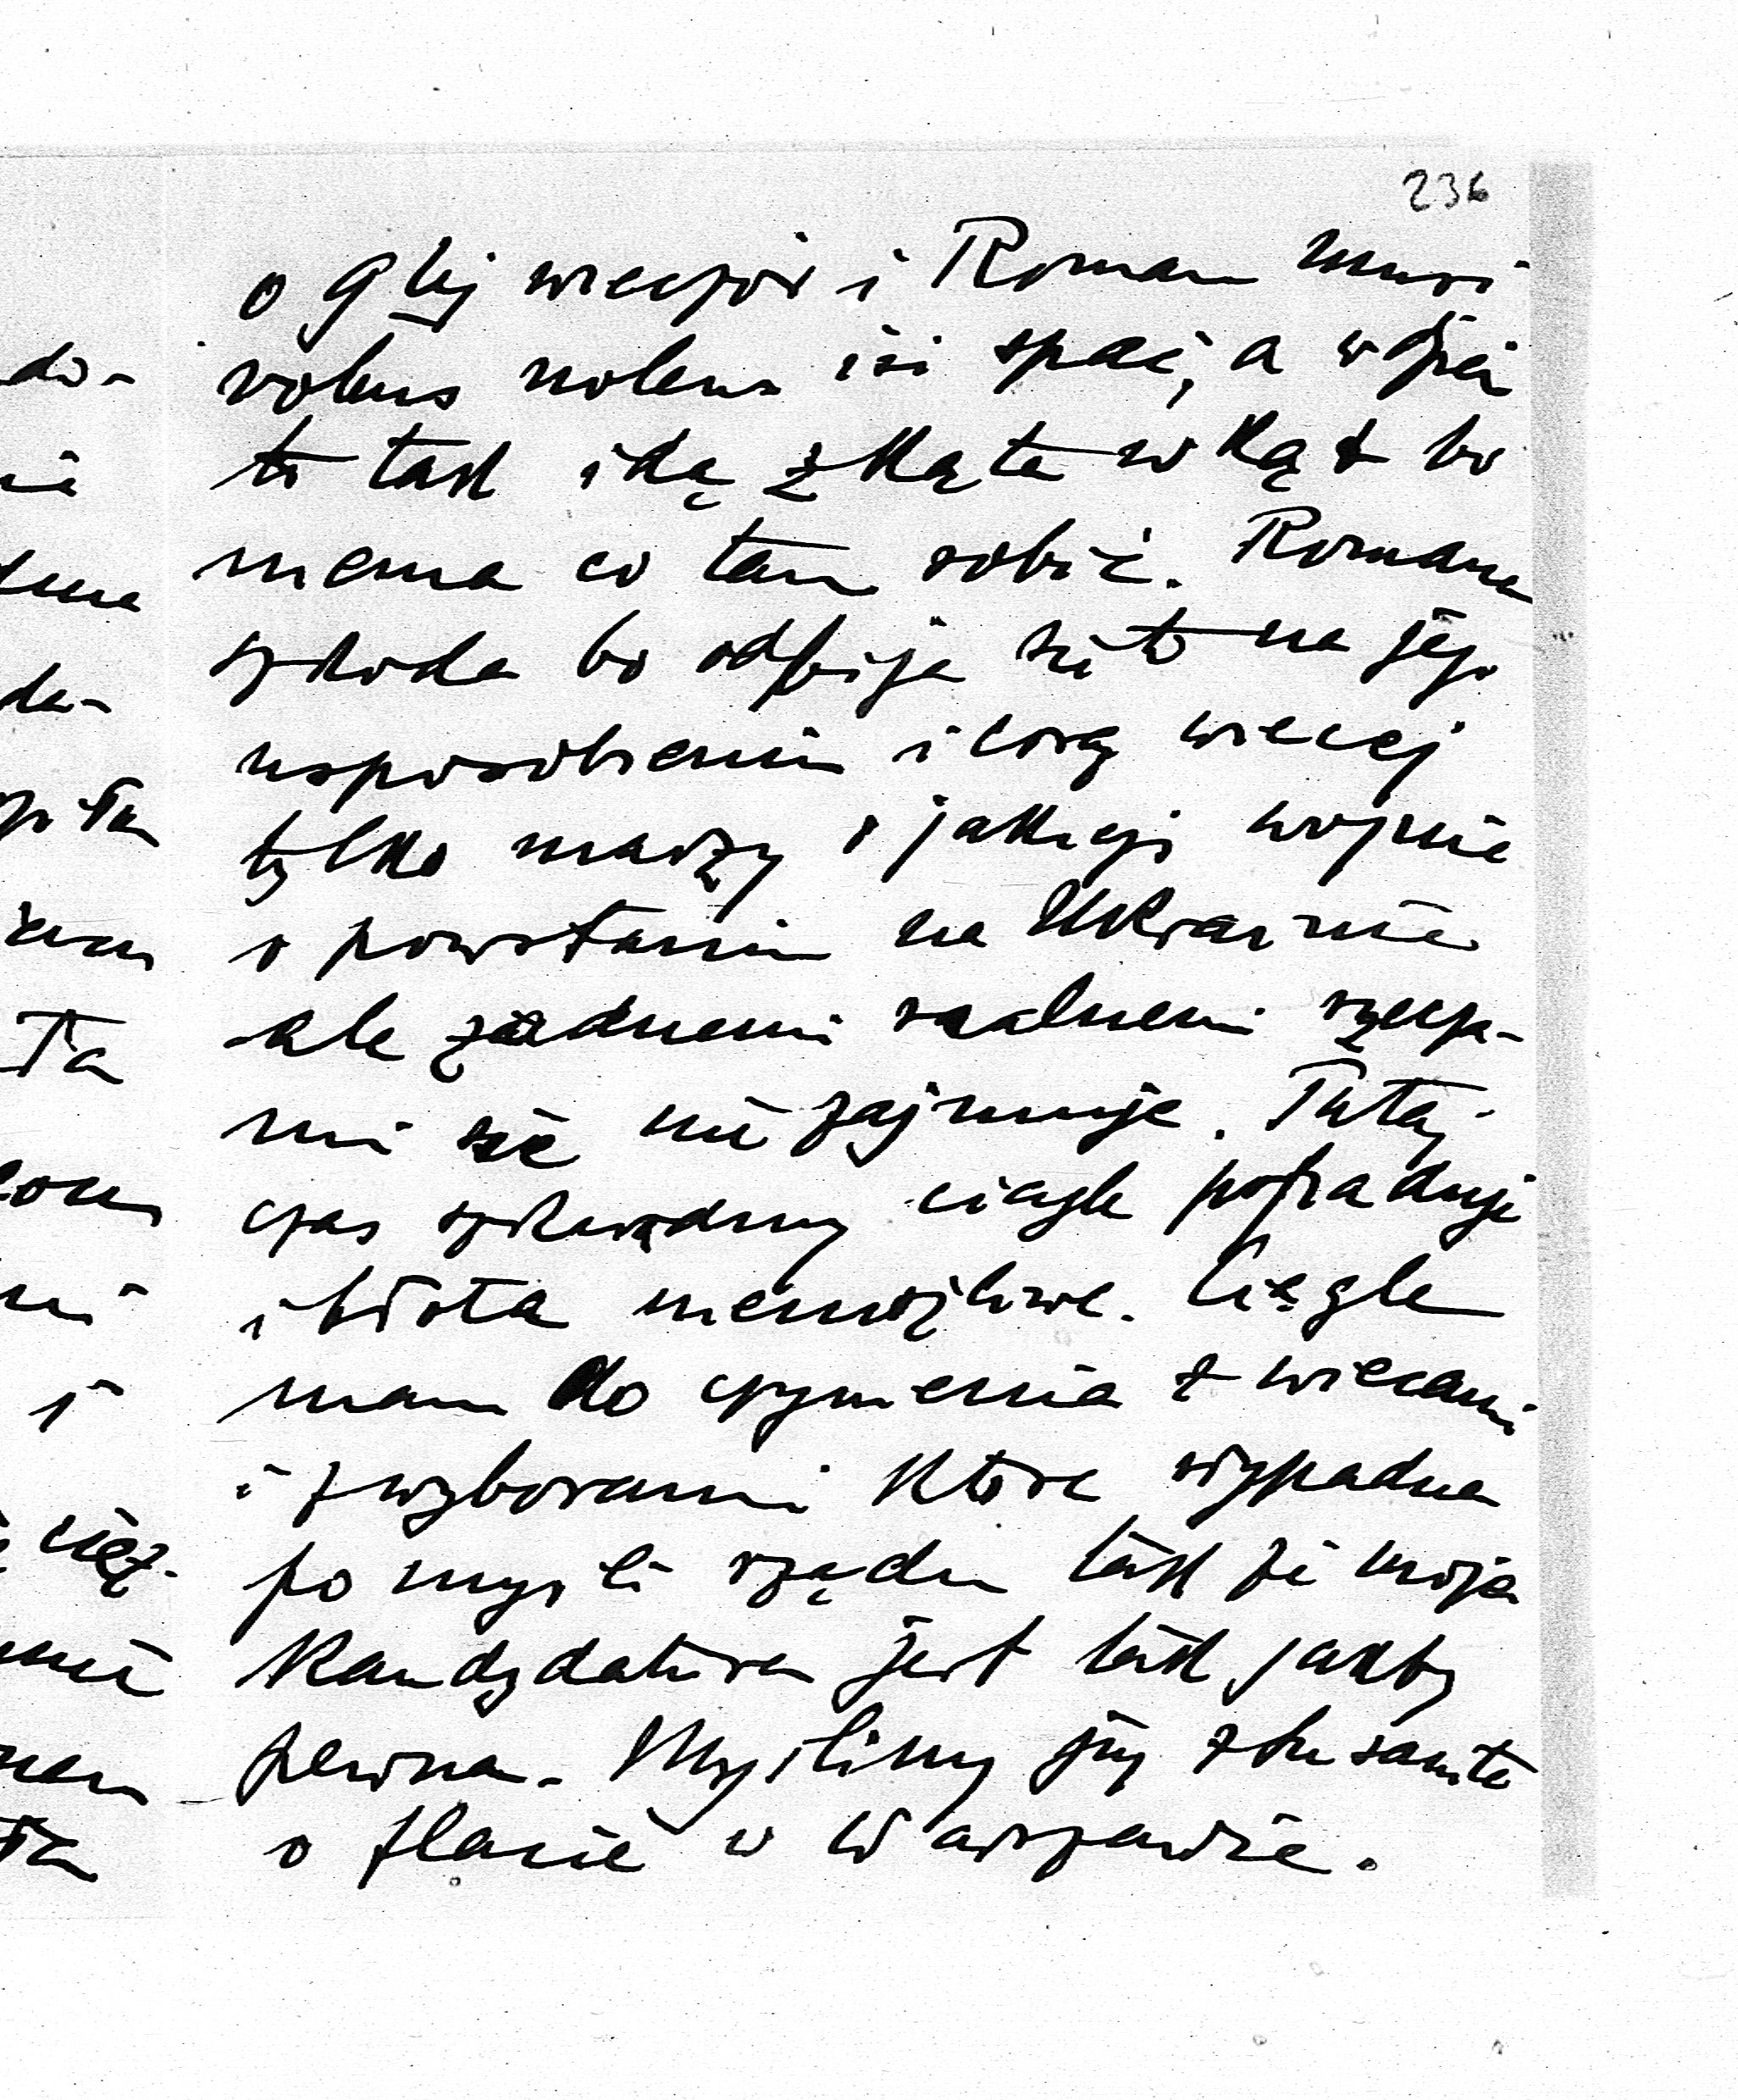 236
o 9 tej wieczór i Roman musi
volens nolens iść spać, a w dzień
to tak idą z kąta w kąt bo
niema co tam robić. Romana
szkoda bo odbija się to na jego
usposobieniu i coraz więcej
tylko marzy o jakiejś wojnie
o powstaniu na Ukrainie
ale żadnemi realnemi rzecza-
mi się nie zajmuje. Tutaj
czas szkaradny ciągle popaduje
i błota niemożliwe. Ciągle
mam do czynienia z wiecami
i z wyborami które wypadną
po myśli rządu tak że moja
kandydatura jest tak jakby
pewna. Myślimy już z Zuzanną
o placie w Warszawie.